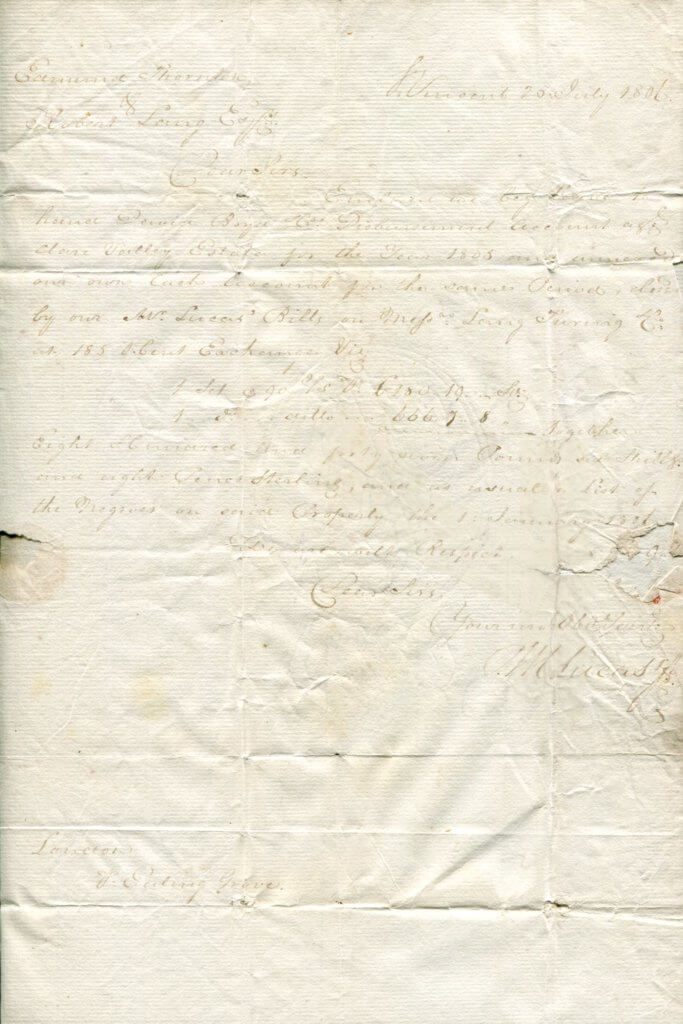 Edmund Thornton
& St Vincent 25 July 1806.
Robert Laing Esqrs.
Dear Sirs.
Enclosed we beg leave to
hand David Boyd Disbursement Account agst
Clare Valley Estate for the Year 1805 and annexed
our own Cash Account for the same Period, closed
by our Mr. Lucas' Bills on Messrs Lang Turing & Co.
at 185 Cent Exchange Viz
1 Set @ 90 d/s £180.19.. Stg
1 do. ditto 666.7.8 Together
Eight Hundred and forty seven Pounds six Shillgs.
and eight Pence Sterling, and as usual a List of
the Negroes on said Property the 1st. January 1806
We are with Respect
Dear Sirs.
Your Obdt Servts
Lucas
London
P. Ealing Grove.